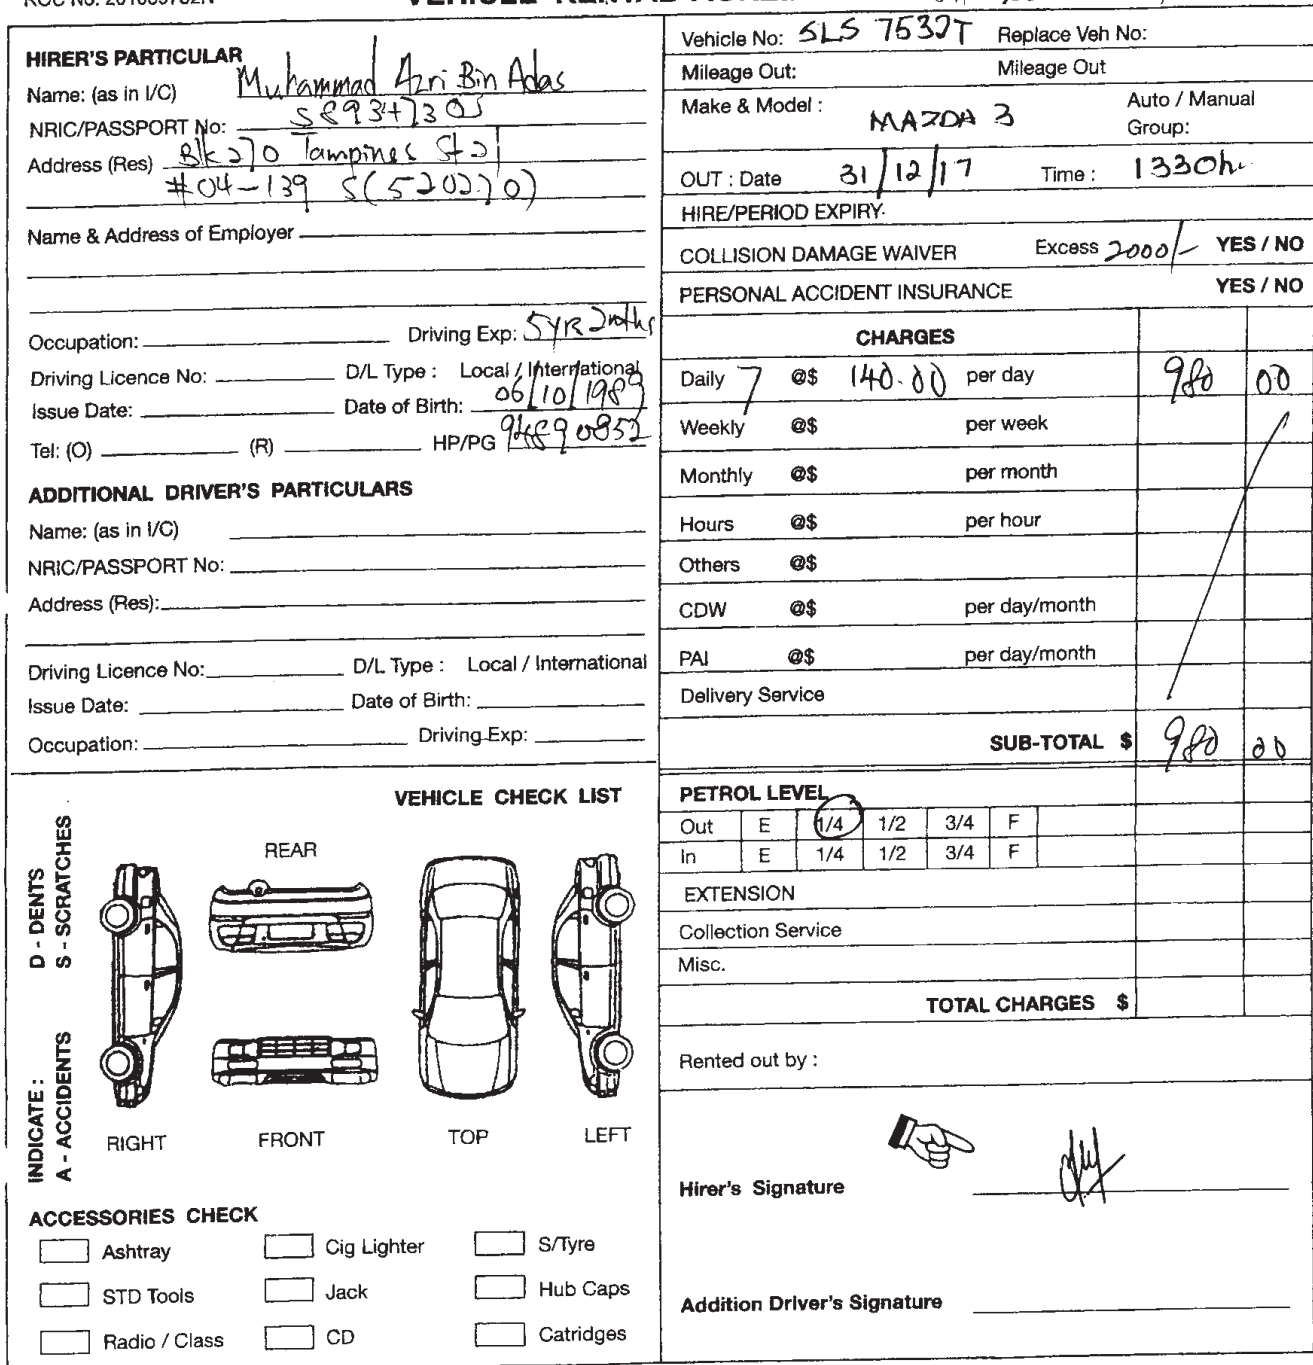 HIRER'S PARTICULAR
Name: (as in I/C) Muhammad Azri Bin Adas
NRIC/PASSPORT No: S8934730J
Address (Res) Blk 270 Tampines St 21
#04-139 S(520270)
Name & Address of Employer
Occupation: Driving Exp: 5YR 2mths
Driving Licence No: D/L Type : Local / International
Issue Date: Date of Birth: 06/10/1989
Tel: (O) (R) HP/PG 94890852
ADDITIONAL DRIVER'S PARTICULARS
Name: (as in I/C)
NRIC/PASSPORT No:
Address (Res):
Driving Licence No: D/L Type : Local / International
Issue Date: Date of Birth:
Occupation: Driving Exp:
VEHICLE CHECK LIST
INDICATE : D - DENTS
A - ACCIDENTS S - SCRATCHES
REAR
RIGHT FRONT TOP LEFT
ACCESSORIES CHECK
Ashtray Cig Lighter S/Tyre
STD Tools Jack Hub Caps
Radio / Class CD Catridges
Vehicle No: SLS 7532T Replace Veh No:
Mileage Out: Mileage Out
Make & Model : MAZDA 3 Auto / Manual
Group:
OUT : Date 31/12/17 Time : 1330hr
HIRE/PERIOD EXPIRY
COLLISION DAMAGE WAIVER Excess 2000/- YES / NO
PERSONAL ACCIDENT INSURANCE YES / NO
CHARGES
Daily 7 @$ 140.00 per day 980 00
Weekly @$ per week
Monthly @$ per month
Hours @$ per hour
Others @$
CDW @$ per day/month
PAI @$ per day/month
Delivery Service
SUB-TOTAL $ 980 00
PETROL LEVEL
Out E 1/4 1/2 3/4 F
In E 1/4 1/2 3/4 F
EXTENSION
Collection Service
Misc.
TOTAL CHARGES $
Rented out by :
Hirer's Signature
Addition Driver's Signature